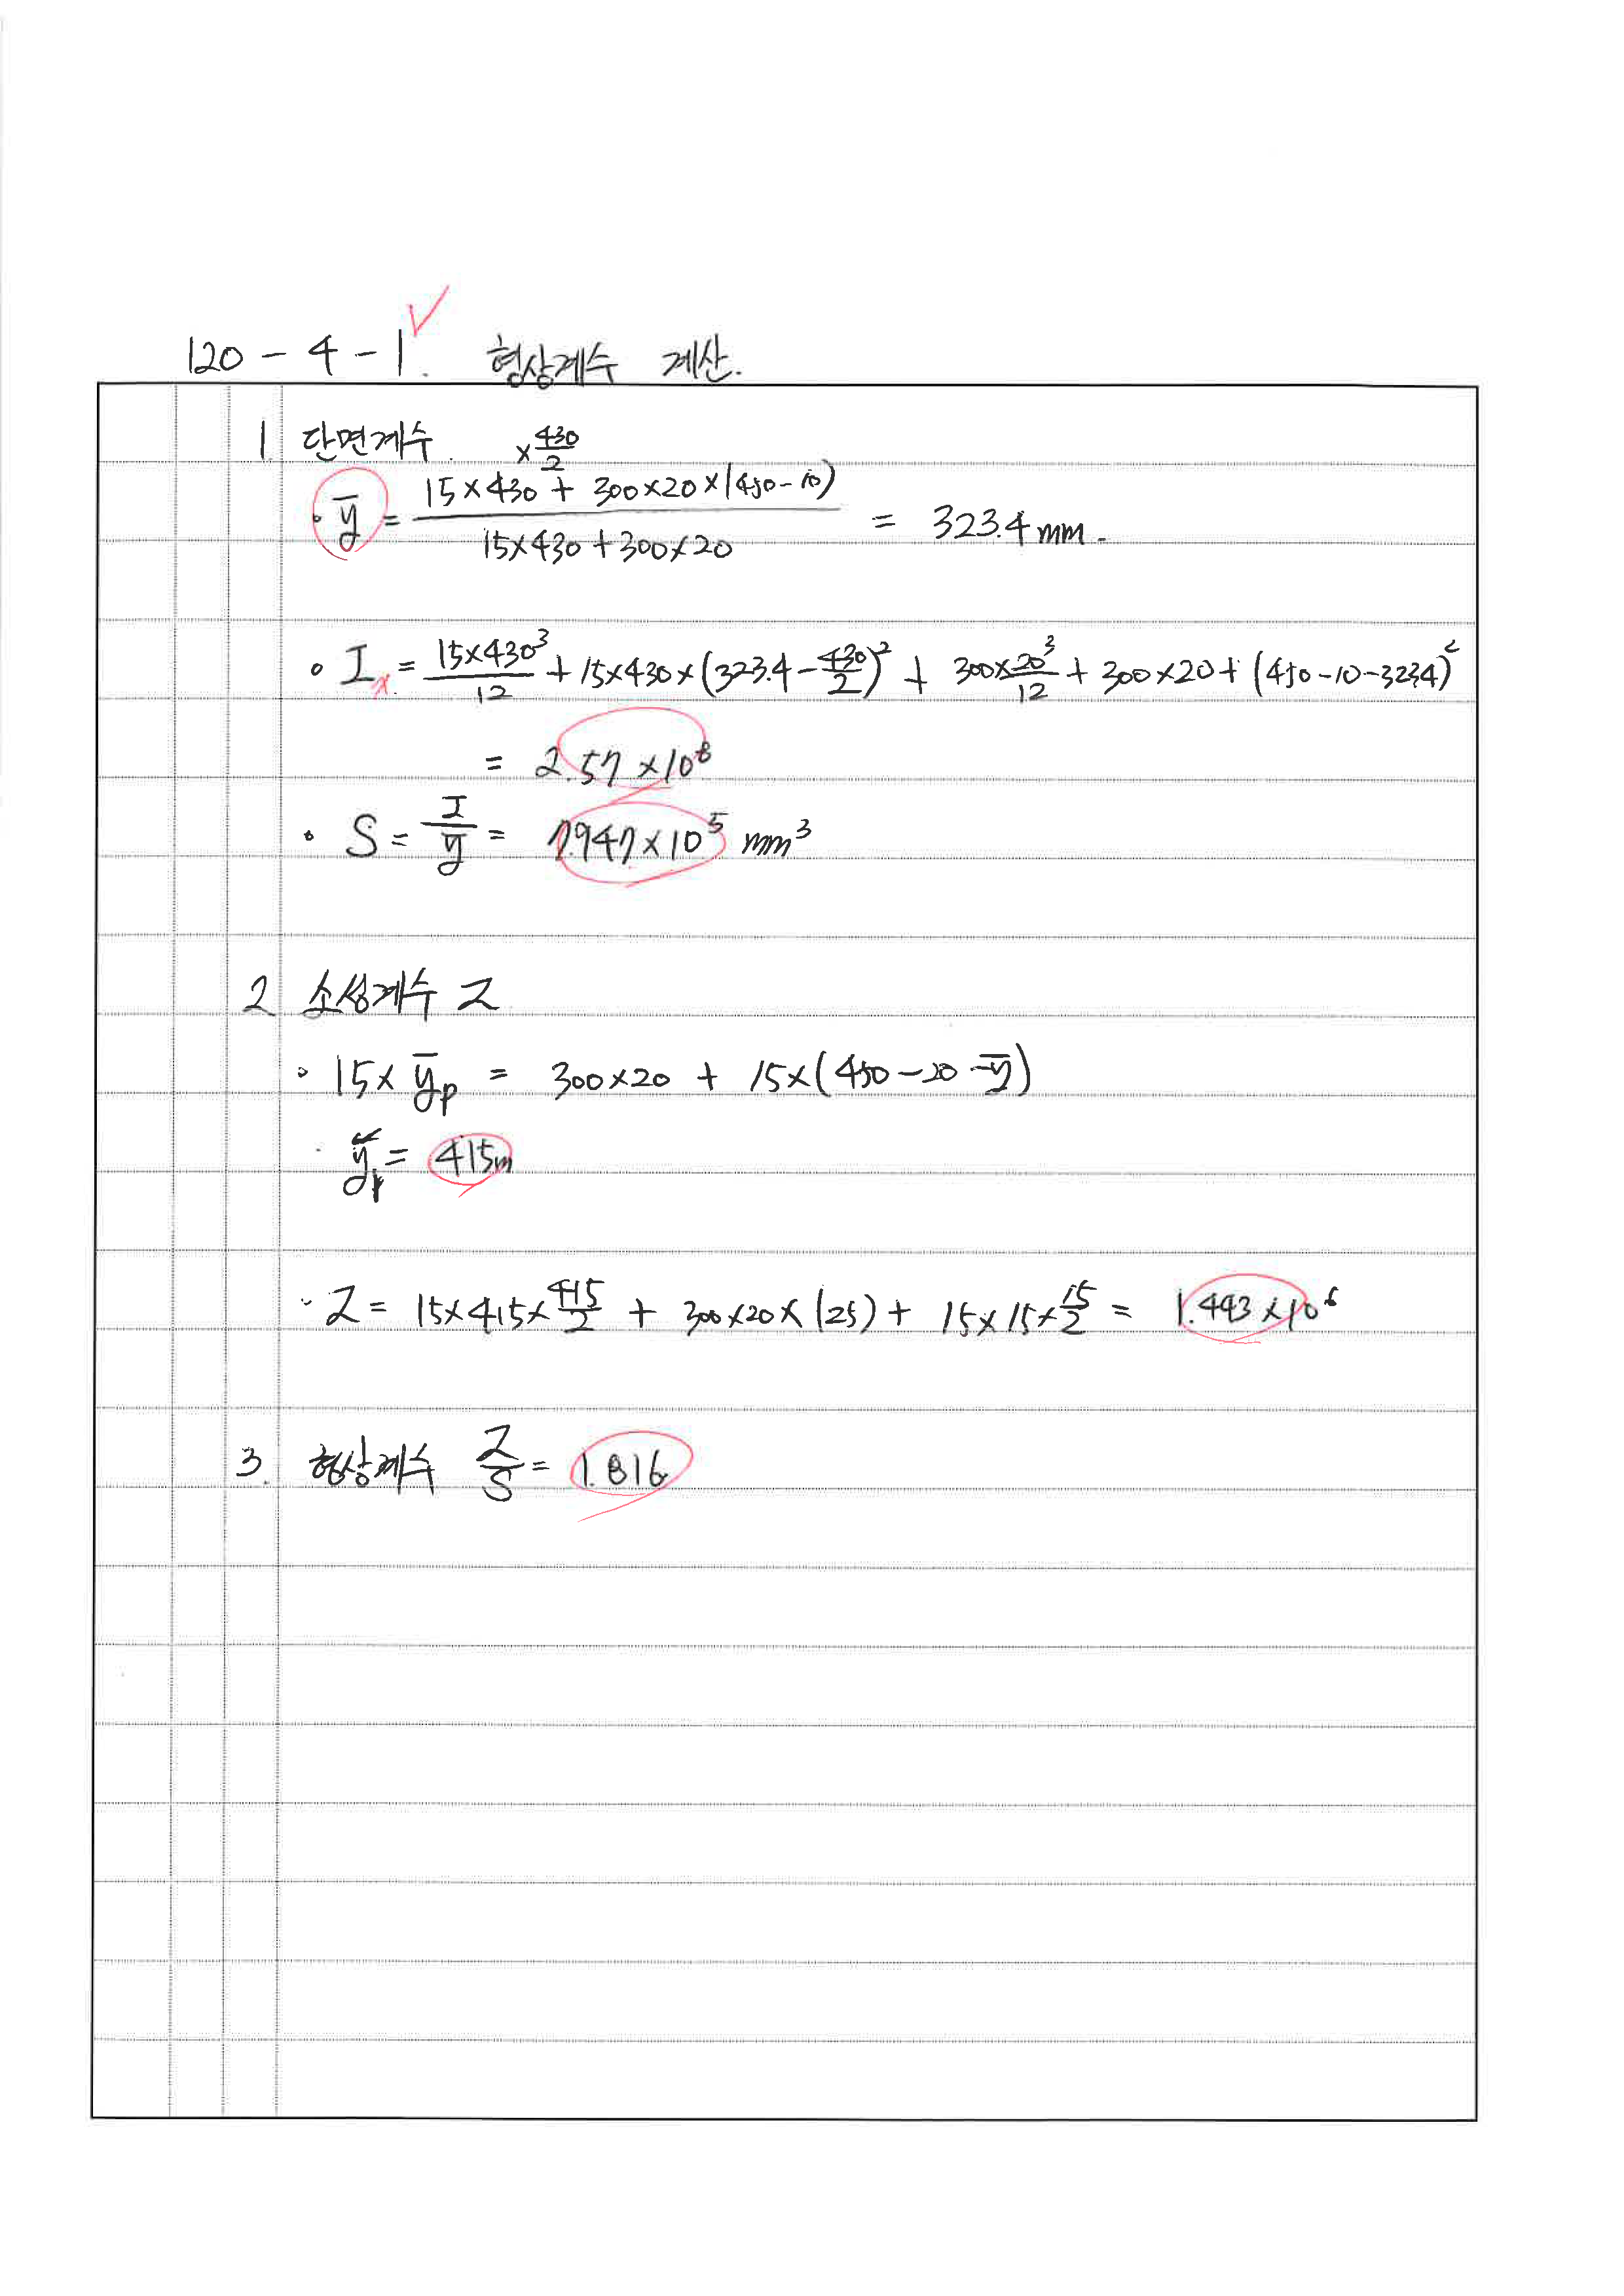 120 - 4 - 1. 형상계수 계산.
1. 단면계수. × 430/2
• ȳ = (15×430 + 300×20×(450-10)) / (15×430+300×20) = 323.4 mm.
• Ix = 15×430³/12 + 15×430×(323.4 - 430/2)² + 300×20³/12 + 300×20+(450-10-323.4)²
= 2.57×10⁸
• S = I/ȳ = 7.947×10⁵ mm³
2. 소성계수 Z
• 15×ȳp = 300×20 + 15×(450-20-ȳ)
• ȳp = 415m
• Z = 15×415×415/2 + 300×20×(25) + 15×15×15/2 = 1.443×10⁶
3. 형상계수 Z/S = 1.816